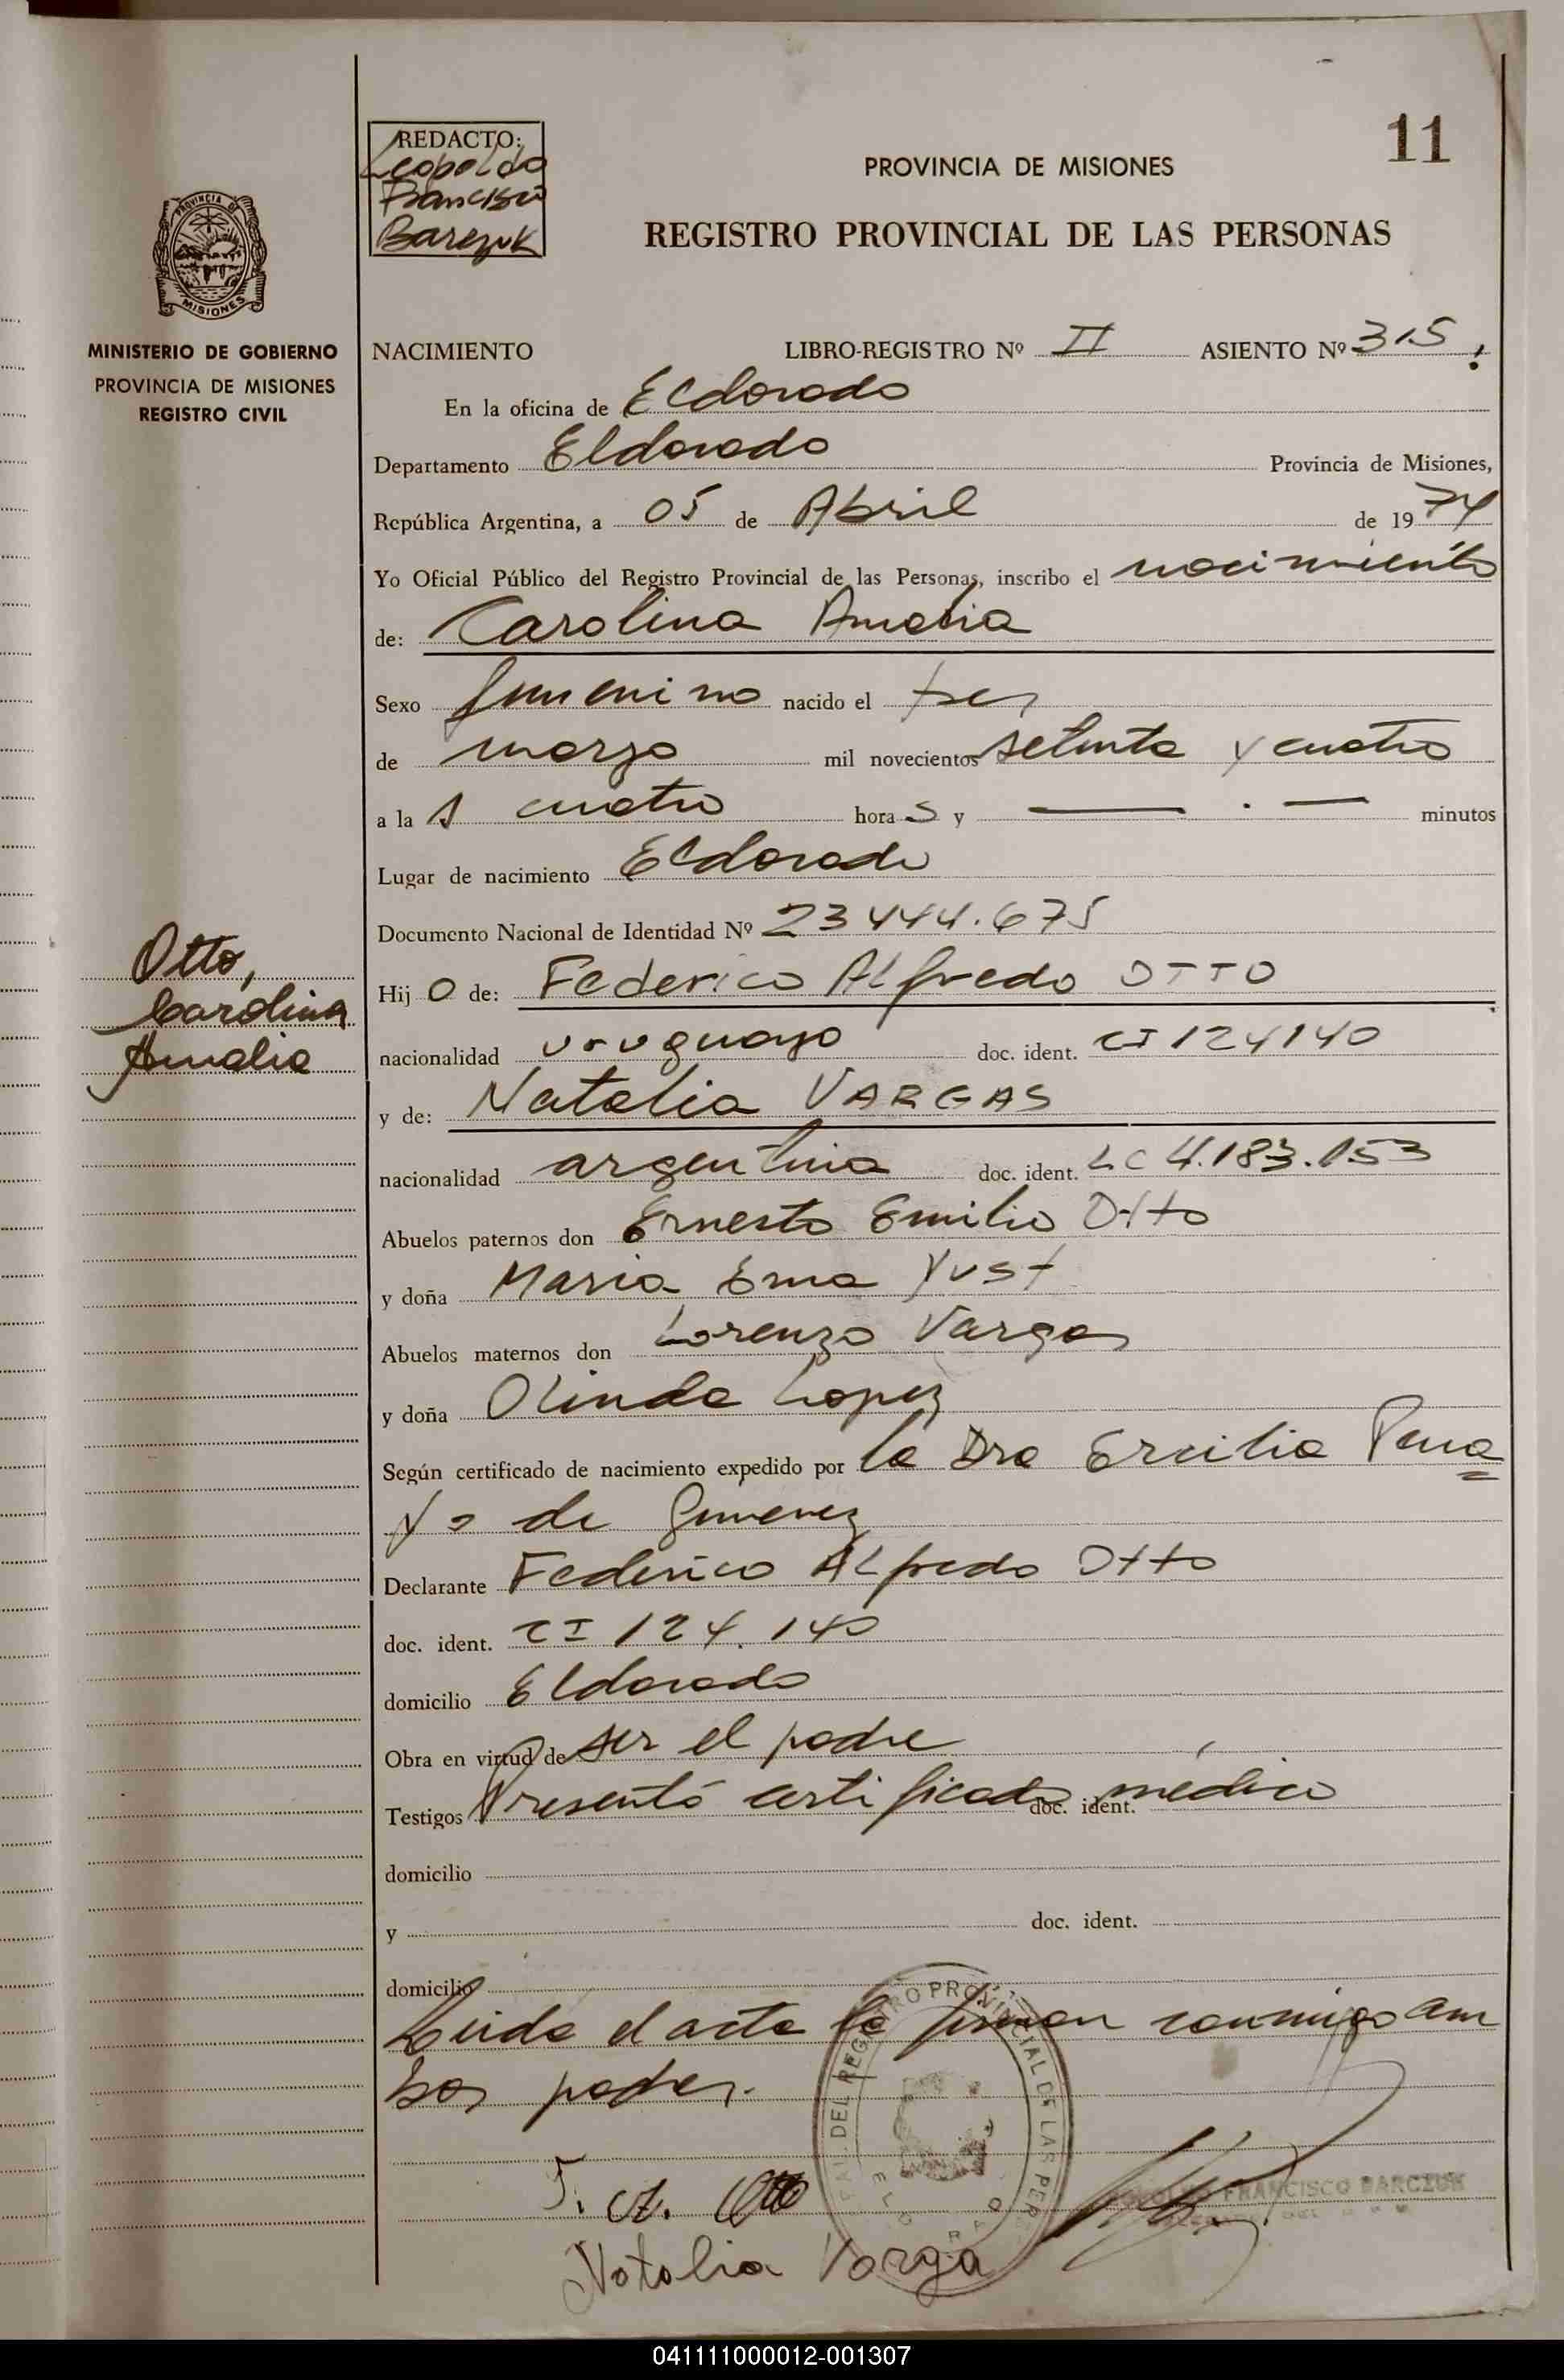 11
REDACTO:
Leopoldo
Francisco
Barczuk
PROVINCIA DE MISIONES
REGISTRO PROVINCIAL DE LAS PERSONAS
PROVINCIA DE
MISIONES
MINISTERIO DE GOBIERNO
PROVINCIA DE MISIONES
REGISTRO CIVIL
NACIMIENTO LIBRO-REGISTRO Nº II ASIENTO Nº 315.
En la oficina de Eldorado
Departamento Eldorado Provincia de Misiones,
República Argentina, a 05 de Abril de 1974
Yo Oficial Público del Registro Provincial de las Personas, inscribo el nacimiento
de: Carolina Amalia
Sexo femenino nacido el tres
de marzo mil novecientos setenta y cuatro
a la s cuatro hora s y — . — minutos
Lugar de nacimiento Eldorado
Documento Nacional de Identidad Nº 23444.675
Otto,
Carolina
Amalia
Hij o de: Federico Alfredo OTTO
nacionalidad uruguayo doc. ident. CI 124140
y de: Natalia VARGAS
nacionalidad argentina doc. ident. LC 4.183.153
Abuelos paternos don Ernesto Emilio Otto
y doña Maria Ema Yust
Abuelos maternos don Lorenzo Vargas
y doña Olinda Lopez
Según certificado de nacimiento expedido por la Dra Ercilia Pana
yo de Gimenez
Declarante Federico Alfredo Otto
doc. ident. CI 124.140
domicilio Eldorado
Obra en virtud de ser el padre
Testigos Presentó certificado doc. ident. médico
domicilio
y doc. ident.
domicilio
Leida el acta la firman conmigo am
bos padres.
DEL REGISTRO PROVINCIAL DE LAS PER
F. A. Otto
FRANCISCO BARCZUK
Natalia Varga
041111000012-001307